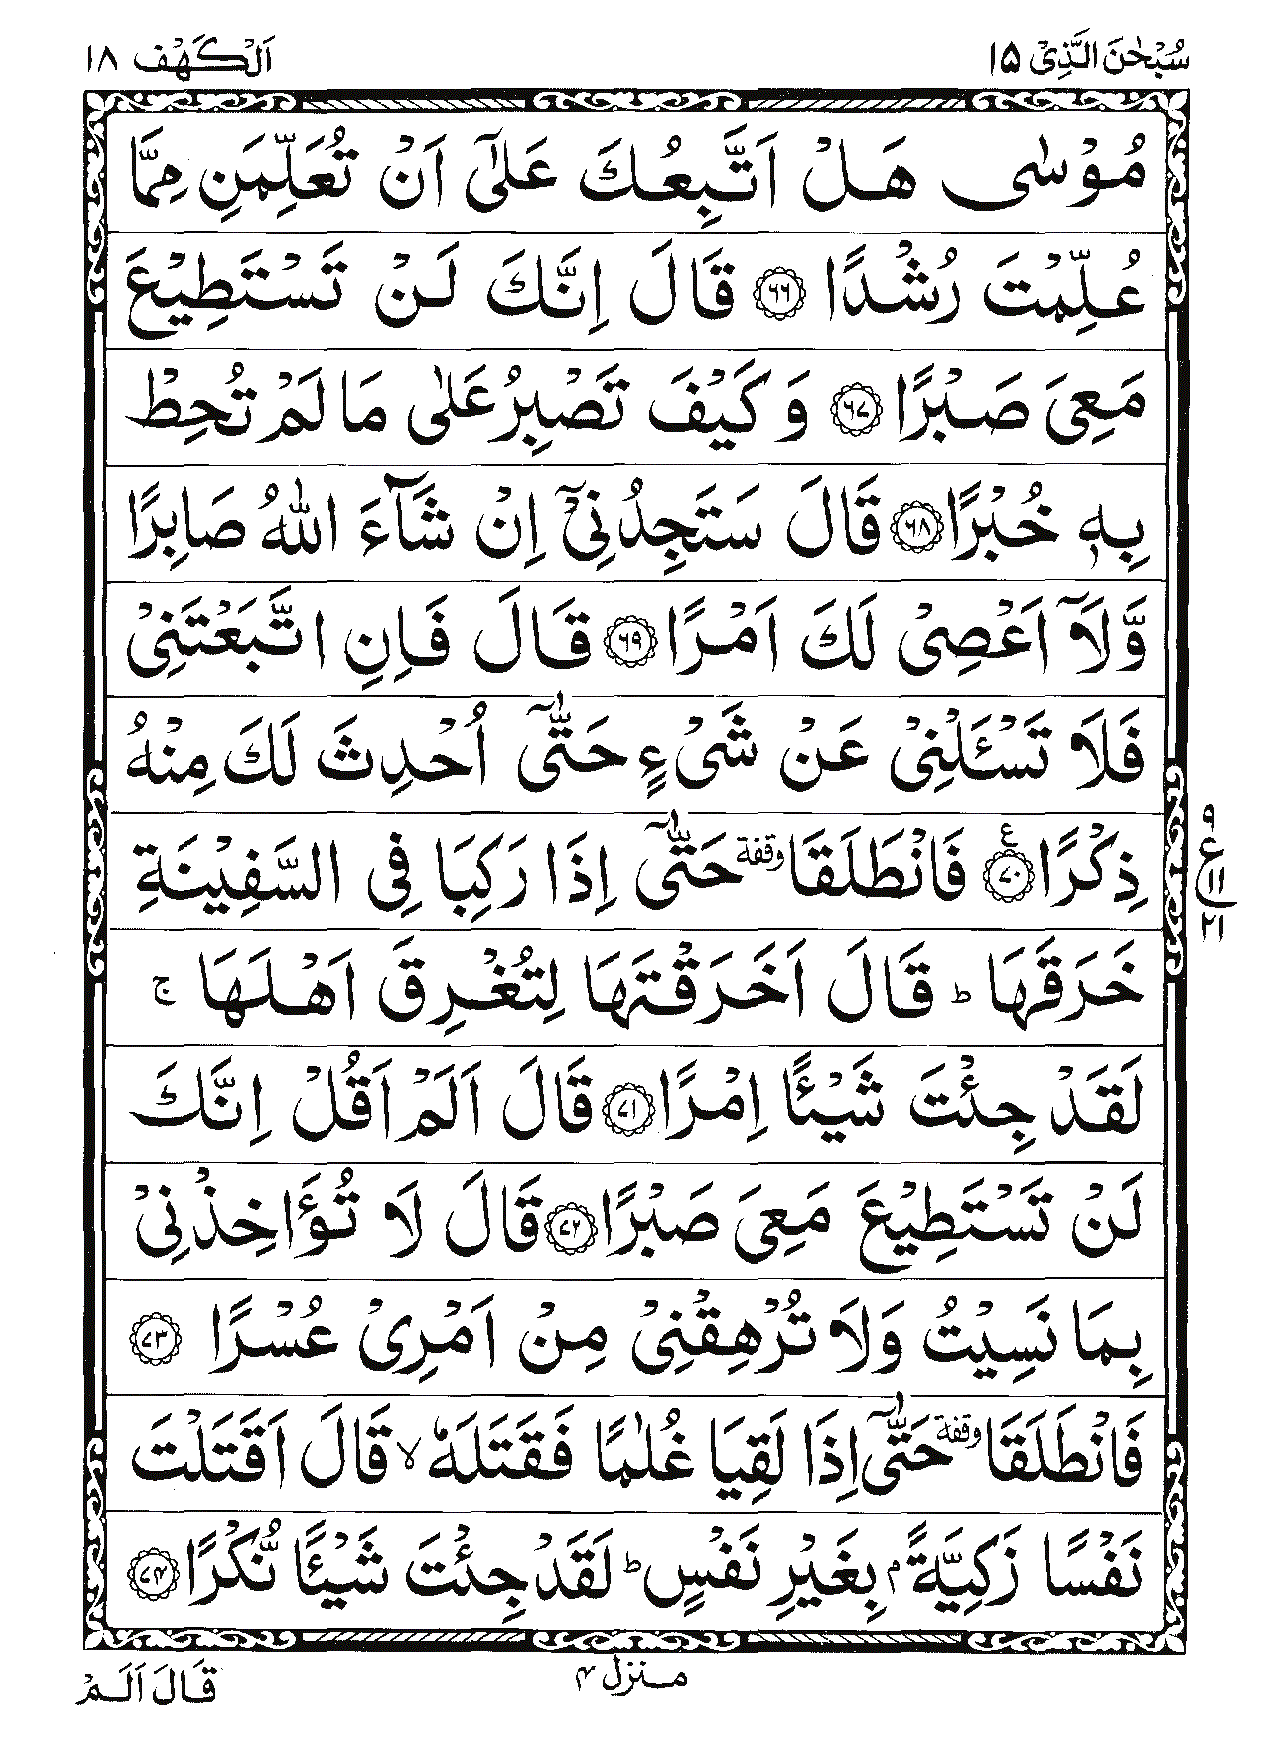 سُبْحٰنَ الَّذِیْ ۱۵
اَلْكَهْف ۱۸
مُوْسٰی هَلْ اَتَّبِعُكَ عَلٰۤی اَنْ تُعَلِّمَنِ مِمَّا
عُلِّمْتَ رُشْدًا ﴿۶۶﴾ قَالَ اِنَّكَ لَنْ تَسْتَطِیْعَ
مَعِیَ صَبْرًا ﴿۶۷﴾ وَ كَیْفَ تَصْبِرُ عَلٰی مَا لَمْ تُحِطْ
بِهٖ خُبْرًا ﴿۶۸﴾ قَالَ سَتَجِدُنِیْۤ اِنْ شَآءَ اللّٰهُ صَابِرًا
وَّلَاۤ اَعْصِیْ لَكَ اَمْرًا ﴿۶۹﴾ قَالَ فَاِنِ اتَّبَعْتَنِیْ
فَلَا تَسْـَٔلْنِیْ عَنْ شَیْءٍ حَتّٰۤی اُحْدِثَ لَكَ مِنْهُ
ذِكْرًا ﴿۷۰﴾ ع فَانْطَلَقَا وقفة حَتّٰۤی اِذَا رَكِبَا فِی السَّفِیْنَةِ
۹
ع
۱۱
۲۱
خَرَقَهَا ؕ قَالَ اَخَرَقْتَهَا لِتُغْرِقَ اَهْلَهَا ۚ
لَقَدْ جِئْتَ شَیْـًٔا اِمْرًا ﴿۷۱﴾ قَالَ اَلَمْ اَقُلْ اِنَّكَ
لَنْ تَسْتَطِیْعَ مَعِیَ صَبْرًا ﴿۷۲﴾ قَالَ لَا تُؤَاخِذْنِیْ
بِمَا نَسِیْتُ وَلَا تُرْهِقْنِیْ مِنْ اَمْرِیْ عُسْرًا ﴿۷۳﴾
فَانْطَلَقَا وقفة حَتّٰۤی اِذَا لَقِیَا غُلٰمًا فَقَتَلَهٗ ۙ قَالَ اَقَتَلْتَ
نَفْسًا زَكِیَّةًۢ بِغَیْرِ نَفْسٍ ؕ لَقَدْ جِئْتَ شَیْـًٔا نُّكْرًا ﴿۷۴﴾
منزل ۴
قَالَ اَلَمْ